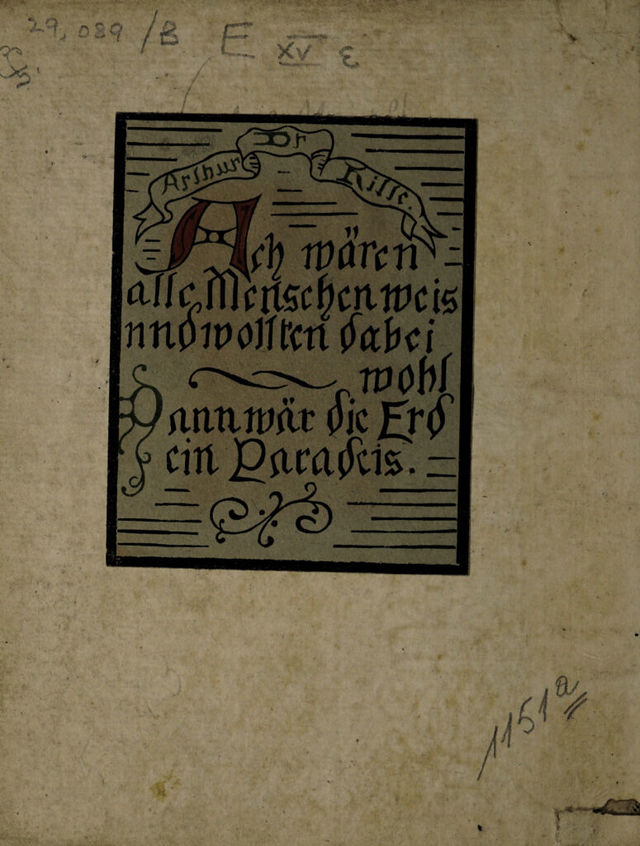 29, 089 /B E XV ε
Arthur Dr
Ach wären
alle Menschen weis
und wollten dabei
wohl
Dann wär die Erd
ein Paradeis.
1151a